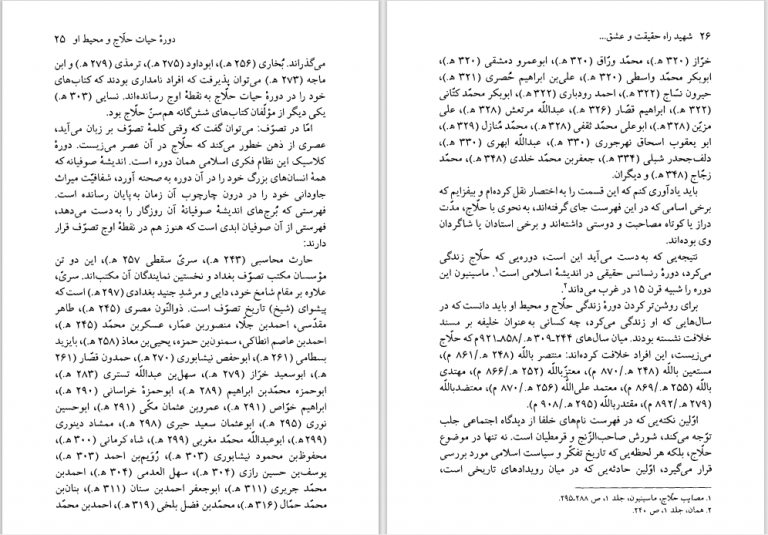 دورهٔ حیات حلّاج و محیط او   ۲۵
می‌گذراند. بُخاری (۲۵۶ هـ.)، ابوداود (۲۷۵ هـ.)، ترمذی (۲۷۹ هـ.) و ابن
ماجه (۲۷۳ هـ.) می‌توان پذیرفت که افراد نامداری بودند که کتاب‌های
خود را در دورهٔ حیات حلّاج به نقطهٔ اوج رسانده‌اند. نسایی (۳۰۳ هـ.)
یکی دیگر از مؤلّفان کتاب‌های شش‌گانه هم‌سنّ حلّاج بود.
امّا در تصوّف: می‌توان گفت که وقتی کلمهٔ تصوّف بر زبان می‌آید،
عصری از ذهن خطور می‌کند که حلّاج در آن عصر می‌زیست. دورهٔ
کلاسیک این نظام فکری اسلامی همان دوره است. اندیشهٔ صوفیانه که
همهٔ انسان‌های بزرگ خود را در آن دوره به صحنه آورد، شفافیّت میراث
جاودانی خود را در درون چارچوب آن زمان به پایان رسانده است.
فهرستی که بُرج‌های اندیشهٔ صوفیانهٔ آن روزگار را به دست می‌دهد،
فهرستی از آن صوفیان ابدی است که هنوز هم در نقطهٔ اوج تصوّف قرار
دارند:
حارث محاسبی (۲۴۳ هـ.)، سریّ سقطی ۲۵۷ هـ.)، این دو تن
مؤسسان مکتب تصوّف بغداد و نخستین نمایندگان آن مکتب‌اند. سریّ،
علاوه بر مقام شامخ خود، دایی و مرشدِ جنید بغدادی (۲۹۷ هـ.) است که
پیشوای (شیخ) تاریخ تصوّف است. ذوالنّون مصری (۲۴۵ هـ.)، طاهر
مقدّسی، احمدبن جلّا، منصوربن عمّار، عسکربن محمّد (۲۴۵ هـ.)،
احمدبن عاصم انطاکی، سمنون‌بن حمزه، یحیی‌بن معاذ (۲۵۸ هـ.)، بایزید
بسطامی (۲۶۱ هـ.)، ابوحفص نیشابوری (۲۷۰ هـ.)، حمدون قصّار (۲۶۱
هـ.)، ابوسعید خرّاز (۲۷۹ هـ.)، سهل‌بن عبداللّه تستری (۲۸۳ هـ.)،
ابوحمزه محمّدبن ابراهیم (۲۸۹ هـ.)، ابوحمزهٔ خراسانی (۲۹۰ هـ.)،
ابراهیم خوّاص (۲۹۱ هـ.)، عمروبن عثمان مکّی (۲۹۱ هـ.)، ابوحسین
نوری (۲۹۵ هـ.)، ابوعثمان سعید حیری (۲۹۸ هـ.)، ممشاد دینوری
(۲۹۹هـ.)، ابوعبداللّه محمّد مغربی (۲۹۹ هـ.)، شاه کرمانی (۳۰۰ هـ.)،
محفوظ‌بن محمود نیشابوری (۳۰۳ هـ.)، رُوَیم‌بن احمد (۳۰۳ هـ.)،
یوسف‌بن حسین رازی (۳۰۴ هـ.)، سهل العدمی (۳۰۴ هـ.)، احمدبن
محمّد جریری (۳۱۱ هـ.)، ابوجعفر احمدبن سنان (۳۱۱ هـ.)، بنان‌بن
محمّد حمّال (۳۱۶ هـ.)، محمّدبن فضل بلخی (۳۱۹ هـ.)، احمدبن محمّد
۲۶   شهید راه حقیقت و عشق...
خرّاز (۳۲۰ هـ.)، محمّد ورّاق (۳۲۰ هـ.)، ابوعمرو دمشقی (۳۲۰ هـ.)،
ابوبکر محمّد واسطی (۳۲۰ هـ.)، علی‌بن ابراهیم حُصری (۳۲۱ هـ.)،
حیرون نسّاج (۳۲۲ هـ.)، احمد رودباری (۳۲۲ هـ.)، ابوبکر محمّد کتّانی
(۳۲۲ هـ.)، ابراهیم قصّار (۳۲۶ هـ.)، عبداللّه مرتعش (۳۲۸ هـ.)، علی
مزیّن (۳۲۸ هـ.)، ابوعلی محمّد ثقفی (۳۲۸ هـ.)، محمّد مُنازل (۳۲۹ هـ.)،
ابو یعقوب اسحاق نهرجوری (۳۳۰ هـ.)، عبداللّه ابهری (۳۳۰ هـ.)،
دلف‌جحدر شبلی (۳۳۴ هـ.)، جعفربن محمّد خلدی (۳۴۸ هـ.)، محمّد
زجّاج (۳۴۸ هـ.) و دیگران.
باید یادآوری کنم که این قسمت را به اختصار نقل کرده‌ام و بیفزایم که
برخی اسامی که در این فهرست جای گرفته‌اند، به نحوی با حلّاج، مدّت
دراز یا کوتاه مصاحبت و دوستی داشته‌اند و برخی استادان یا شاگردان
وی بوده‌اند.
نتیجه‌یی که به دست می‌آید این است، دوره‌یی که حلّاج زندگی
می‌کرد، دورهٔ رنسانس حقیقی در اندیشهٔ اسلامی است۱. ماسینیون این
دوره را شبیه قرن ۱۵ در غرب می‌داند۲.
برای روشن‌تر کردن دورهٔ زندگی حلّاج و محیط او باید دانست که در
سال‌هایی که او زندگی می‌کرد، چه کسانی به‌عنوان خلیفه بر مسند
خلافت نشسته بودند. میان سال‌های ۲۴۴-۳۰۹ هـ./۸۵۸-۹۲۱م که حلّاج
می‌زیست، این افراد خلافت کرده‌اند: منتصر باللّه (۲۴۸ هـ./۸۶۱ م)،
مستعین باللّه (۲۴۸ هـ./۸۷۰ م)، معتزّباللّه (۲۵۲ هـ./۸۶۶ م)، مهتدی
باللّه (۲۵۵ هـ./۸۶۹ م)، معتمد علی‌اللّه (۲۵۶ هـ./۸۷۰ م)، معتضدباللّه
(۲۷۹ هـ./۸۹۲ م)، مقتدرباللّه (۲۹۵ هـ./۹۰۸ م).
اوّلین نکته‌یی که در فهرست نام‌های خلفا از دیدگاه اجتماعی جلب
توجّه می‌کند، شورش صاحب‌الزّنج و قرمطیان است. نه تنها در موضوع
حلّاج، بلکه هر لحظه‌یی که تاریخ تفکّر و سیاست اسلامی مورد بررسی
قرار می‌گیرد، اوّلین حادثه‌یی که در میان رویدادهای تاریخی است،
۱. مصایب حلّاج، ماسینیون، جلد ۱، ص ۲۸۸-۲۹۵.
۲. همان، جلد ۱، ص ۲۴۰.